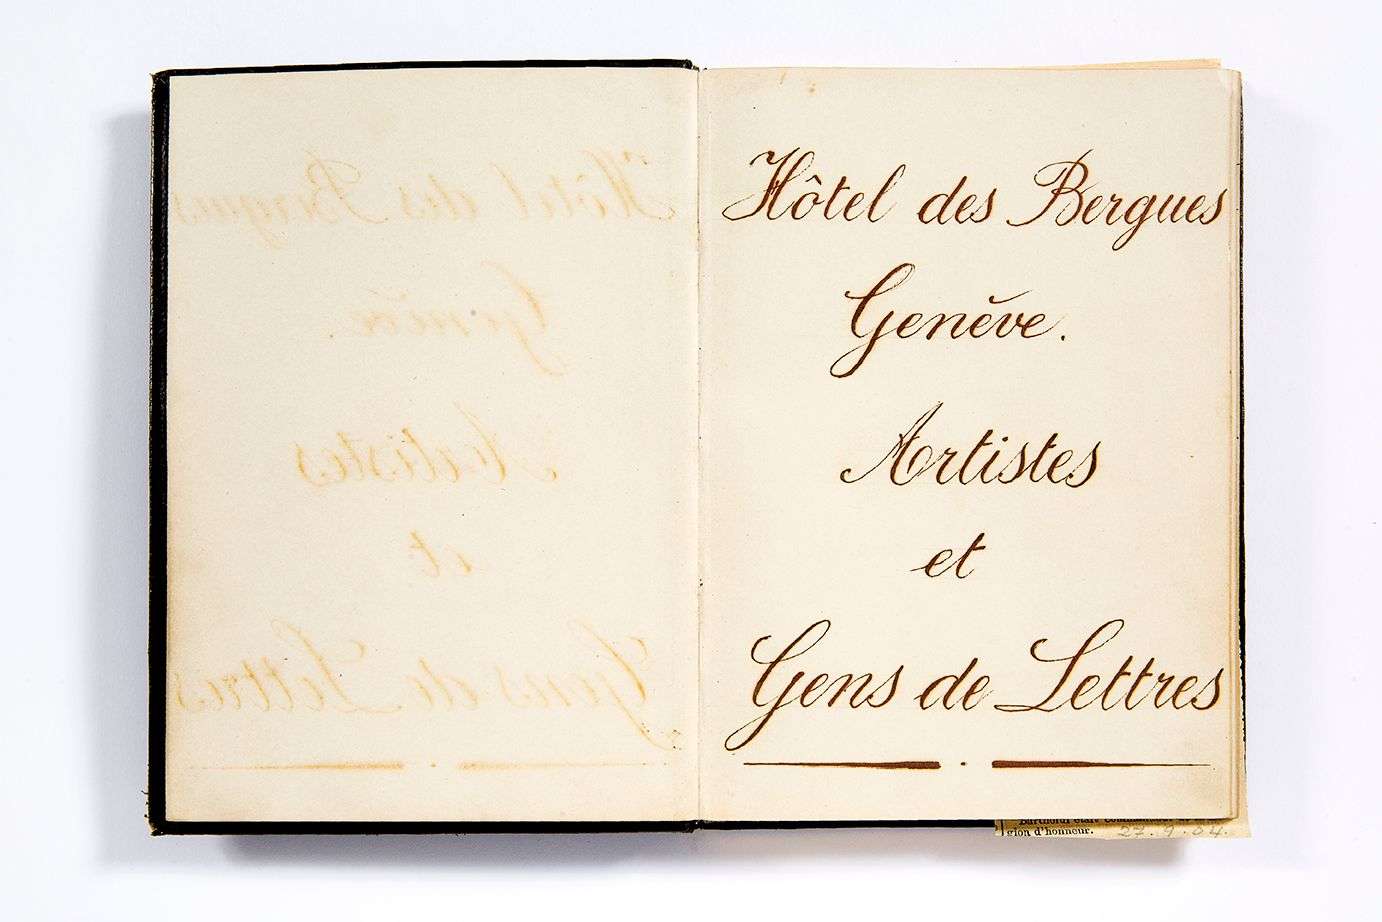 Hôtel des Bergues
Genève.
Artistes
et
Gens de Lettres
Bartholdi était commandeur
gion d'honneur. 27.9.04.